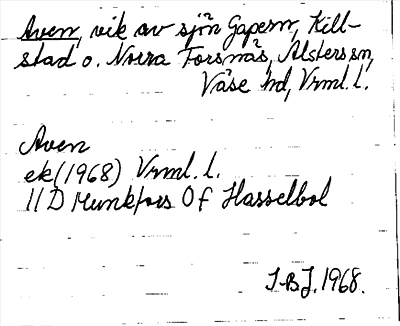 Aven, vik av sjön Gapern, Kill-
stad o. Norra Forsnäs, Alsters sn,
Väse hd, Vrml. l.
Aven
ek (1968) Vrml. l.
11D Munkfors 0f Hasselbol
J-BJ. 1968.